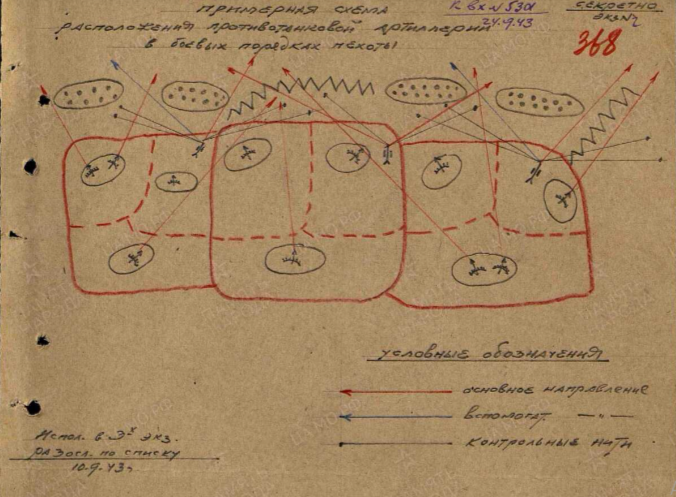 ПРИМЕРНАЯ СХЕМА
РАСПОЛОЖЕНИЯ ПРОТИВОТАНКОВОЙ АРТИЛЛЕРИИ
В БОЕВЫХ ПОРЯДКАХ ПЕХОТЫ
К ВХ № 530
24.9.43
СЕКРЕТНО
ЭКЗ №
368
УСЛОВНЫЕ ОБОЗНАЧЕНИЯ
ОСНОВНОЕ НАПРАВЛЕНИЕ
ВСПОМОГАТ. — " —
КОНТРОЛЬНЫЕ НИТИ
Испол. в 3х экз.
РАЗОСЛ. ПО СПИСКУ
10.9.43г